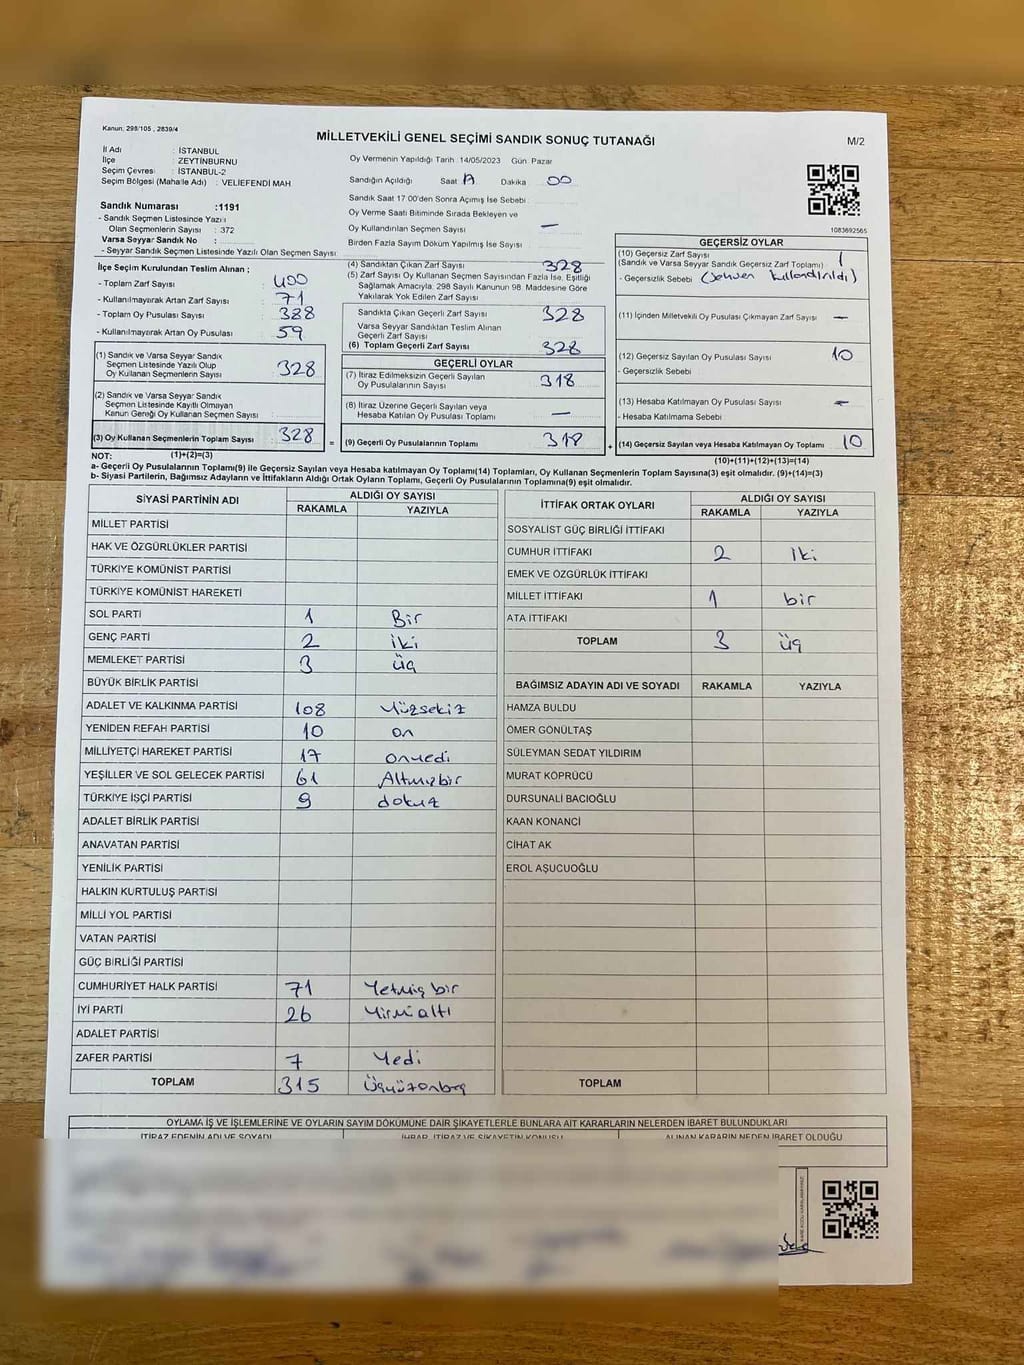 Kanun: 298/105 , 2839/4
MİLLETVEKİLİ GENEL SEÇİMİ SANDIK SONUÇ TUTANAĞI
M/2
İl Adı : İSTANBUL
İlçe : ZEYTİNBURNU
Seçim Çevresi : İSTANBUL-2
Seçim Bölgesi (Mahalle Adı) : VELİEFENDİ MAH
Oy Vermenin Yapıldığı Tarih :14/05/2023 Gün: Pazar
Sandığın Açıldığı Saat Dakika 00
Sandık Saat 17:00'den Sonra Açılmış İse Sebebi
Oy Verme Saati Bitiminde Sırada Bekleyen ve
Oy Kullandırılan Seçmen Sayısı —
Birden Fazla Sayım Döküm Yapılmış İse Sayısı
1083692565
Sandık Numarası :1191
- Sandık Seçmen Listesinde Yazılı
Olan Seçmenlerin Sayısı : 372
Varsa Seyyar Sandık No :
- Seyyar Sandık Seçmen Listesinde Yazılı Olan Seçmen Sayısı :
İlçe Seçim Kurulundan Teslim Alınan ;
- Toplam Zarf Sayısı : 400
- Kullanılmayarak Artan Zarf Sayısı : 71
- Toplam Oy Pusulası Sayısı : 388
- Kullanılmayarak Artan Oy Pusulası : 59
(1) Sandık ve Varsa Seyyar Sandık
Seçmen Listesinde Yazılı Olup
Oy Kullanan Seçmenlerin Sayısı : 328
(2) Sandık ve Varsa Seyyar Sandık
Seçmen Listesinde Kayıtlı Olmayan
Kanun Gereği Oy Kullanan Seçmen Sayısı :
(3) Oy Kullanan Seçmenlerin Toplam Sayısı : 328
(4) Sandıktan Çıkan Zarf Sayısı 328
(5) Zarf Sayısı Oy Kullanan Seçmen Sayısından Fazla İse, Eşitliği
Sağlamak Amacıyla, 298 Sayılı Kanunun 98. Maddesine Göre
Yakılarak Yok Edilen Zarf Sayısı
Sandıkta Çıkan Geçerli Zarf Sayısı 328
Varsa Seyyar Sandıktan Teslim Alınan
Geçerli Zarf Sayısı
(6) Toplam Geçerli Zarf Sayısı 328
GEÇERLİ OYLAR
(7) İtiraz Edilmeksizin Geçerli Sayılan
Oy Pusulalarının Sayısı 318
(8) İtiraz Üzerine Geçerli Sayılan veya
Hesaba Katılan Oy Pusulası Toplamı —
= (9) Geçerli Oy Pusulalarının Toplamı 318
GEÇERSİZ OYLAR
(10) Geçersiz Zarf Sayısı
(Sandık ve Varsa Seyyar Sandık Geçersiz Zarf Toplamı) :
- Geçersizlik Sebebi
(11) İçinden Milletvekili Oy Pusulası Çıkmayan Zarf Sayısı —
(12) Geçersiz Sayılan Oy Pusulası Sayısı 10
- Geçersizlik Sebebi
(13) Hesaba Katılmayan Oy Pusulası Sayısı —
- Hesaba Katılmama Sebebi
+ (14) Geçersiz Sayılan veya Hesaba Katılmayan Oy Toplamı 10
NOT: (1)+(2)=(3)
(10)+(11)+(12)+(13)=(14)
a- Geçerli Oy Pusulalarının Toplamı(9) ile Geçersiz Sayılan veya Hesaba katılmayan Oy Toplamı(14) Toplamları, Oy Kullanan Seçmenlerin Toplam Sayısına(3) eşit olmalıdır. (9)+(14)=(3)
b- Siyasi Partilerin, Bağımsız Adayların ve İttifakların Aldığı Ortak Oyların Toplamı, Geçerli Oy Pusulalarının Toplamına(9) eşit olmalıdır.
SİYASİ PARTİNİN ADI ALDIĞI OY SAYISI
RAKAMLA YAZIYLA
MİLLET PARTİSİ
HAK VE ÖZGÜRLÜKLER PARTİSİ
TÜRKİYE KOMÜNİST PARTİSİ
TÜRKİYE KOMÜNİST HAREKETİ
SOL PARTİ 1 Bir
GENÇ PARTİ 2 iki
MEMLEKET PARTİSİ 3 üç
BÜYÜK BİRLİK PARTİSİ
ADALET VE KALKINMA PARTİSİ 108 Yüzsekiz
YENİDEN REFAH PARTİSİ 10 on
MİLLİYETÇİ HAREKET PARTİSİ 17 onyedi
YEŞİLLER VE SOL GELECEK PARTİSİ 61 Altmışbir
TÜRKİYE İŞÇİ PARTİSİ 9 dokuz
ADALET BİRLİK PARTİSİ
ANAVATAN PARTİSİ
YENİLİK PARTİSİ
HALKIN KURTULUŞ PARTİSİ
MİLLİ YOL PARTİSİ
VATAN PARTİSİ
GÜÇ BİRLİĞİ PARTİSİ
CUMHURİYET HALK PARTİSİ 71 Yetmiş bir
İYİ PARTİ 26 Yirmi altı
ADALET PARTİSİ
ZAFER PARTİSİ 7 Yedi
TOPLAM 315 Üçyüzonbeş
İTTİFAK ORTAK OYLARI ALDIĞI OY SAYISI
RAKAMLA YAZIYLA
SOSYALİST GÜÇ BİRLİĞİ İTTİFAKI
CUMHUR İTTİFAKI 2 iki
EMEK VE ÖZGÜRLÜK İTTİFAKI
MİLLET İTTİFAKI 1 bir
ATA İTTİFAKI
TOPLAM 3 üç
BAĞIMSIZ ADAYIN ADI VE SOYADI RAKAMLA YAZIYLA
HAMZA BULDU
ÖMER GÖNÜLTAŞ
SÜLEYMAN SEDAT YILDIRIM
MURAT KÖPRÜCÜ
DURSUNALİ BACIOĞLU
KAAN KONANCİ
CİHAT AK
EROL AŞUCUOĞLU
TOPLAM
OYLAMA İŞ VE İŞLEMLERİNE VE OYLARIN SAYIM DÖKÜMÜNE DAİR ŞİKAYETLERLE BUNLARA AİT KARARLARIN NELERDEN İBARET BULUNDUKLARI
İTİRAZ EDENİN ADI VE SOYADI İHBAR, İTİRAZ VE ŞİKAYETİN KONUSU ALINAN KARARIN NEDEN İBARET OLDUĞU